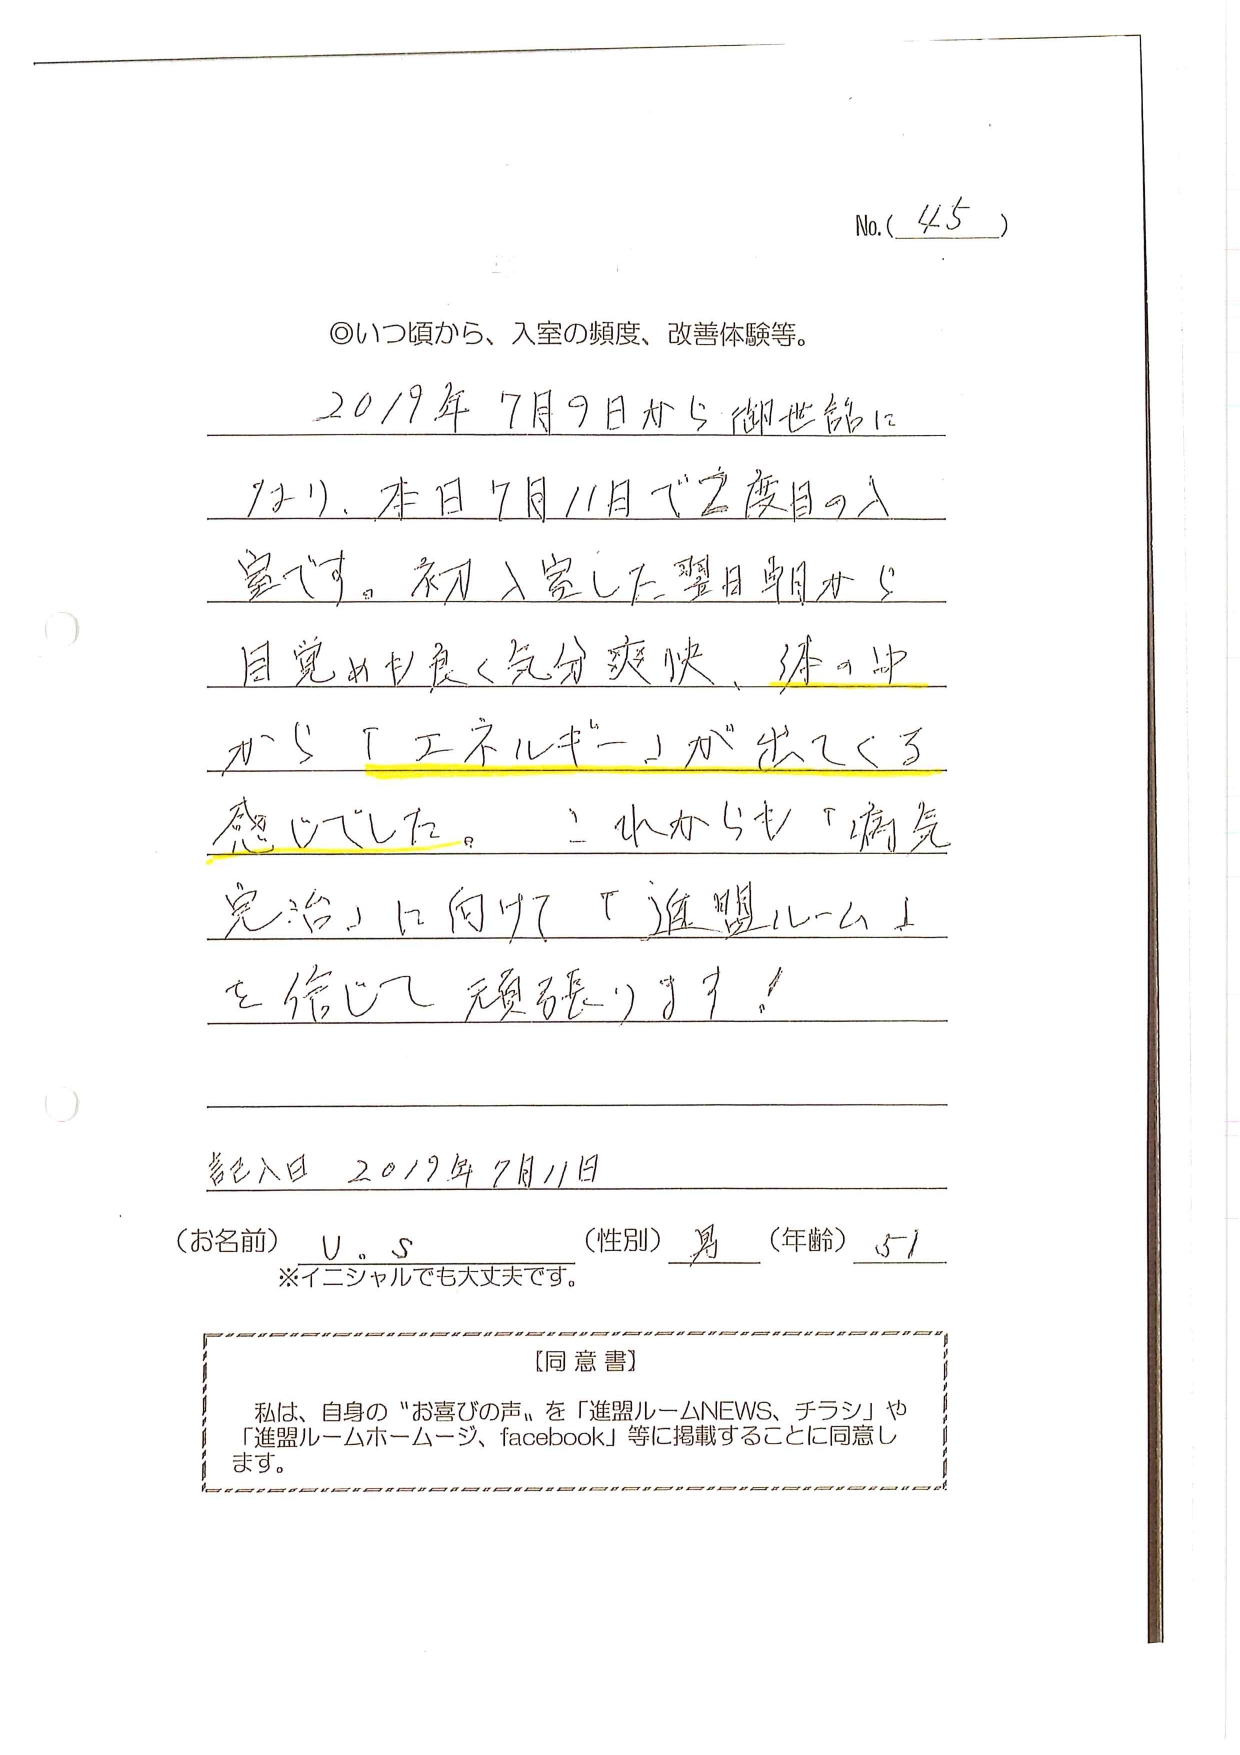 No.( 45 )
◎いつ頃から、入室の頻度、改善体験等。
2019年 7月9日から 御世話に
なり、本日 7月11日で2度目の入
室です。初入室した翌日朝から
目覚めも良く気分爽快、体の中
から「エネルギー」が出てくる
感じでした。 これからも「病気
完治」に向けて『進盟ルーム』
を信じて 頑張ります!
記入日 2019年7月11日
(お名前) U。S (性別) 男 (年齢) 51
※イニシャルでも大丈夫です。
【同 意 書】
私は、自身の〝お喜びの声〟を「進盟ルームNEWS、チラシ」や
「進盟ルームホームージ、facebook」等に掲載することに同意し
ます。